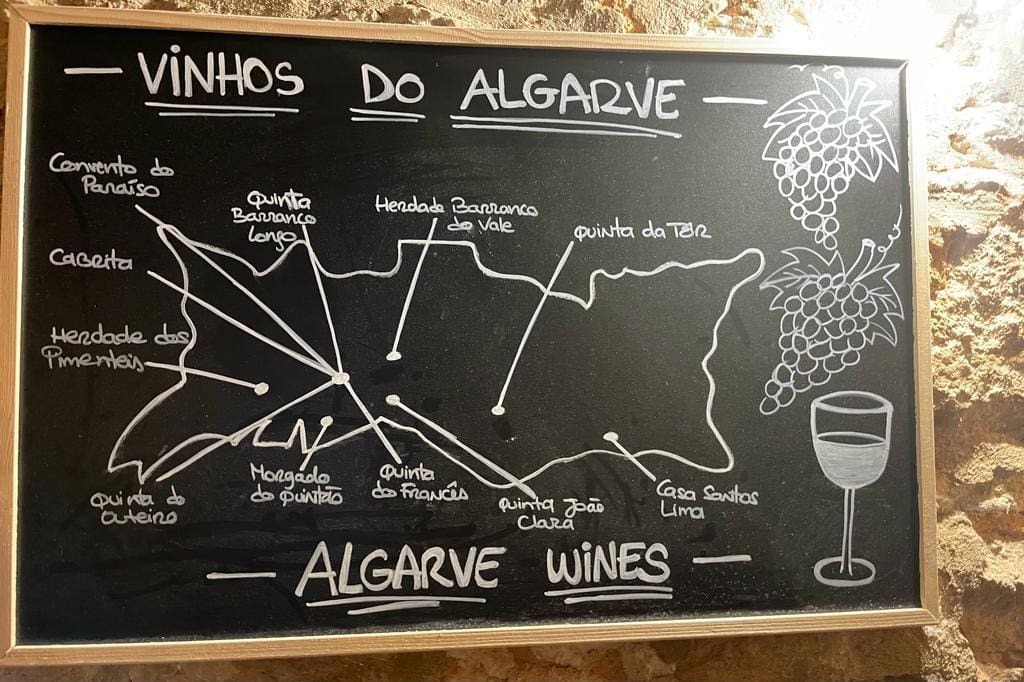 VINHOS DO ALGARVE
Convento do
Paraíso
Quinta
Barranco
Longo
Herdade Barranco
do Vale
Quinta da Tôr
Cabrita
Herdade dos
Pimenteis
Quinta do
Outeiro
Morgado
do Quintão
Quinta
do Francês
Quinta João
Clara
Casa Santos
Lima
ALGARVE WINES